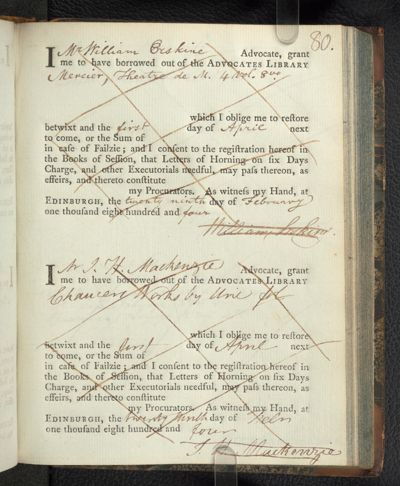 80.
I Mr William Erskine Advocate, grant
me to have borrowed out of the ADVOCATES LIBRARY
Mercier, Theatre de M. 4 vol. 8vo
which I oblige me to restore
betwixt and the first day of April next
to come, or the Sum of
in case of Failzie; and I consent to the registration hereof in
the Books of Session, that Letters of Horning on six Days
Charge, and other Executorials needful, may pass thereon, as
effeirs, and thereto constitute
my Procurators. As witness my Hand, at
EDINBURGH, the twenty ninth day of February
one thousand eight hundred and four
William Erskine
I Mr J. H. Mackenzie Advocate, grant
me to have borrowed out of the ADVOCATES LIBRARY
Chaucers Works by Urie fol
which I oblige me to restore
betwixt and the first day of April next
to come, or the Sum of
in case of Failzie; and I consent to the registration hereof in
the Books of Session, that Letters of Horning on six Days
Charge, and other Executorials needful, may pass thereon, as
effeirs, and thereto constitute
my Procurators. As witness my Hand, at
EDINBURGH, the twenty ninth day of Feby
one thousand eight hundred and four
J. H. Mackenzie